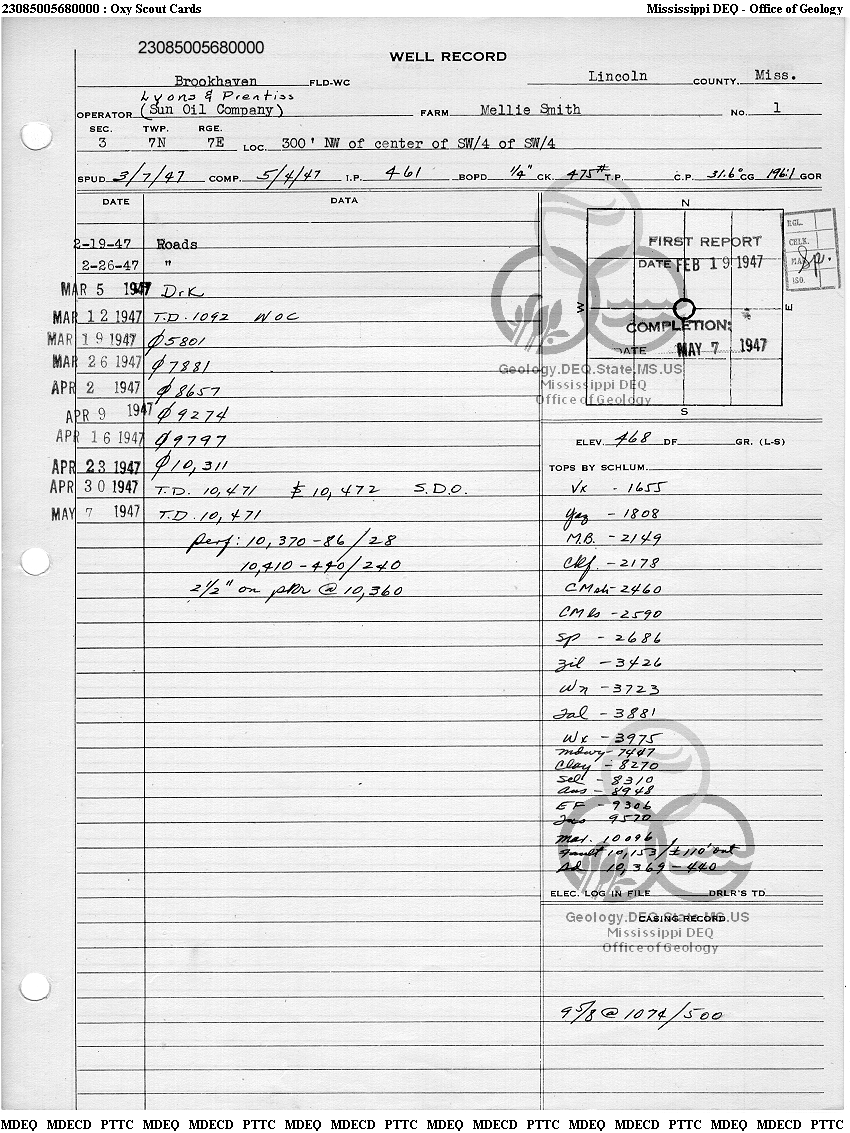 23085005680000 : Oxy Scout Cards
Mississippi DEQ - Office of Geology
23085005680000
WELL RECORD
Brookhaven FLD-WC Lincoln COUNTY, Miss.
Lyons & Prentiss
OPERATOR (Sun Oil Company) FARM Mellie Smith No. 1
SEC. TWP. RGE.
3 7N 7E LOC. 300' NW of center of SW/4 of SW/4
SPUD 3/7/47 COMP. 5/4/47 I.P. 461 BOPD 1/4" CK. 475# T.P. C.P. 31.6° CG 196:1 GOR
DATE DATA
2-19-47 Roads
2-26-47 "
MAR 5 1947 Drk
MAR 12 1947 T.D. 1092 WOC
MAR 19 1947 Ø 5801
MAR 26 1947 Ø 7881
APR 2 1947 Ø 8657
APR 9 1947 Ø 9274
APR 16 1947 Ø 9797
APR 23 1947 Ø 10,311
APR 30 1947 T.D. 10,471 10,472 S.D.O.
MAY 7 1947 T.D. 10,471
Perf: 10,370-86/28
10,410-440/240
2 1/2" on pkr @ 10,360
N
FIRST REPORT
DATE FEB 19 1947
W E
COMPLETION:
DATE MAY 7 1947
S
RGL.
CHLK.
MA
ISO.
Sp.
Geology.DEQ.State.MS.US
Mississippi DEQ
Office of Geology
ELEV. 468 DF GR. (L-S)
TOPS BY SCHLUM.
Vx - 1655
Yaz - 1808
M.B. - 2149
Ckf - 2178
CMsh - 2460
CMls - 2590
Sp - 2686
Zil - 3426
Wn - 3723
Tal - 3881
Wx - 3975
Mdwy - 7447
Clay - 8270
Sel - 8310
Aus - 8948
EF - 9306
Tus 9570
Mar. 10096
Fault 10,153/±110' out
Sd 10,369-440
ELEC. LOG IN FILE DRLR'S TD
CASING RECORD
Geology.DEQ.State.MS.US
Mississippi DEQ
Office of Geology
9 5/8 @ 1074/500
MDEQ MDECD PTTC MDEQ MDECD PTTC MDEQ MDECD PTTC MDEQ MDECD PTTC MDEQ MDECD PTTC MDEQ MDECD PTTC